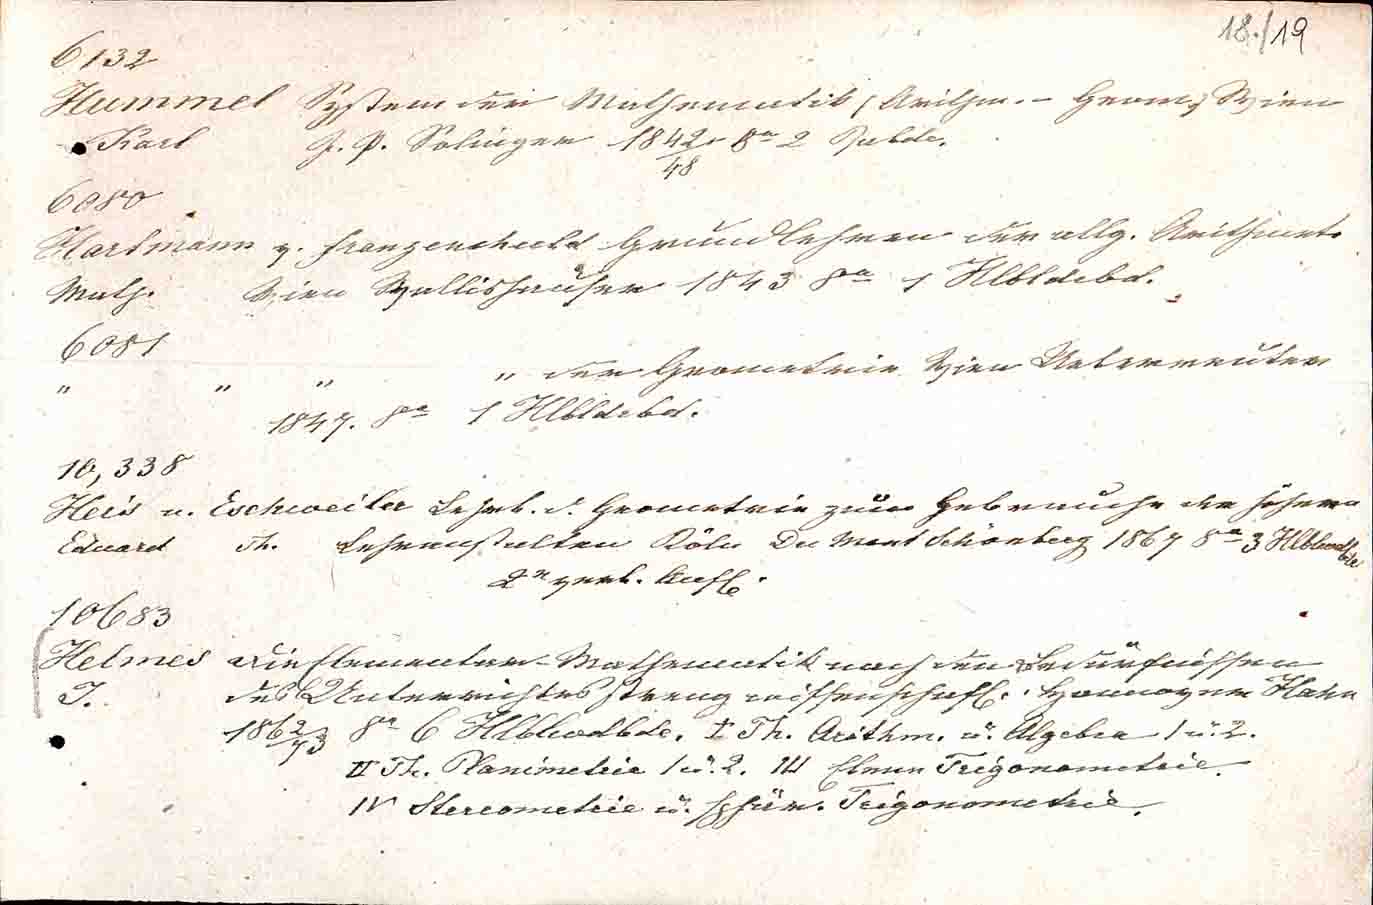 18./19
6132
Hummel System der Mathematik (Arithm. - Geom.) Wien
Karl J. P. Solinger 1842- 8º 2 Ppbde.
48
6080
Hartmann v. Franzenshuld Grundlehren der allg. Arithmet.
Math. Wien Wallishausser 1843 8º 1 Hlbldrbd.
6081
" " " " der Geometrie Wien Ueberreuter
1847. 8º 1 Hlbldrbd.
10,338
Heis u. Eschweiler Lehrb. d. Geometrie zum Gebrauche der höhern
Eduard Th. Lehranstalten Köln Du Mont Schönberg 1867 8º 3 Hlblwdbde
2e verb. Aufl.
10683
Helmes Die Elementar-Mathematik nach den Bedürfnissen
J. des Unterrichtes streng wissenschaftl. Hannover Hahn
1862/73 8º 6 Hlblwdbde. I Th. Arithm. u. Algebra 1 u. 2.
II Th. Planimetrie 1 u. 2. III Ebene Trigonometrie.
IV Stereometrie u. sphär. Trigonometrie.